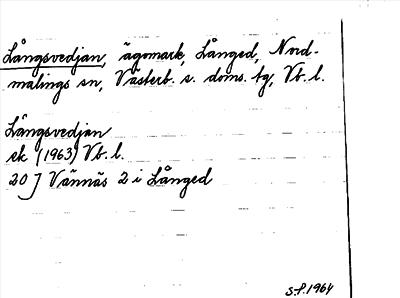 Långsvedjan, ägomark, Långed, Nord-
malings sn, Västerb. s. doms. tg, Vb. l.
Långsvedjan
ek (1963) Vb. l.
20 J Vännäs 2 i Långed
S.P. 1964